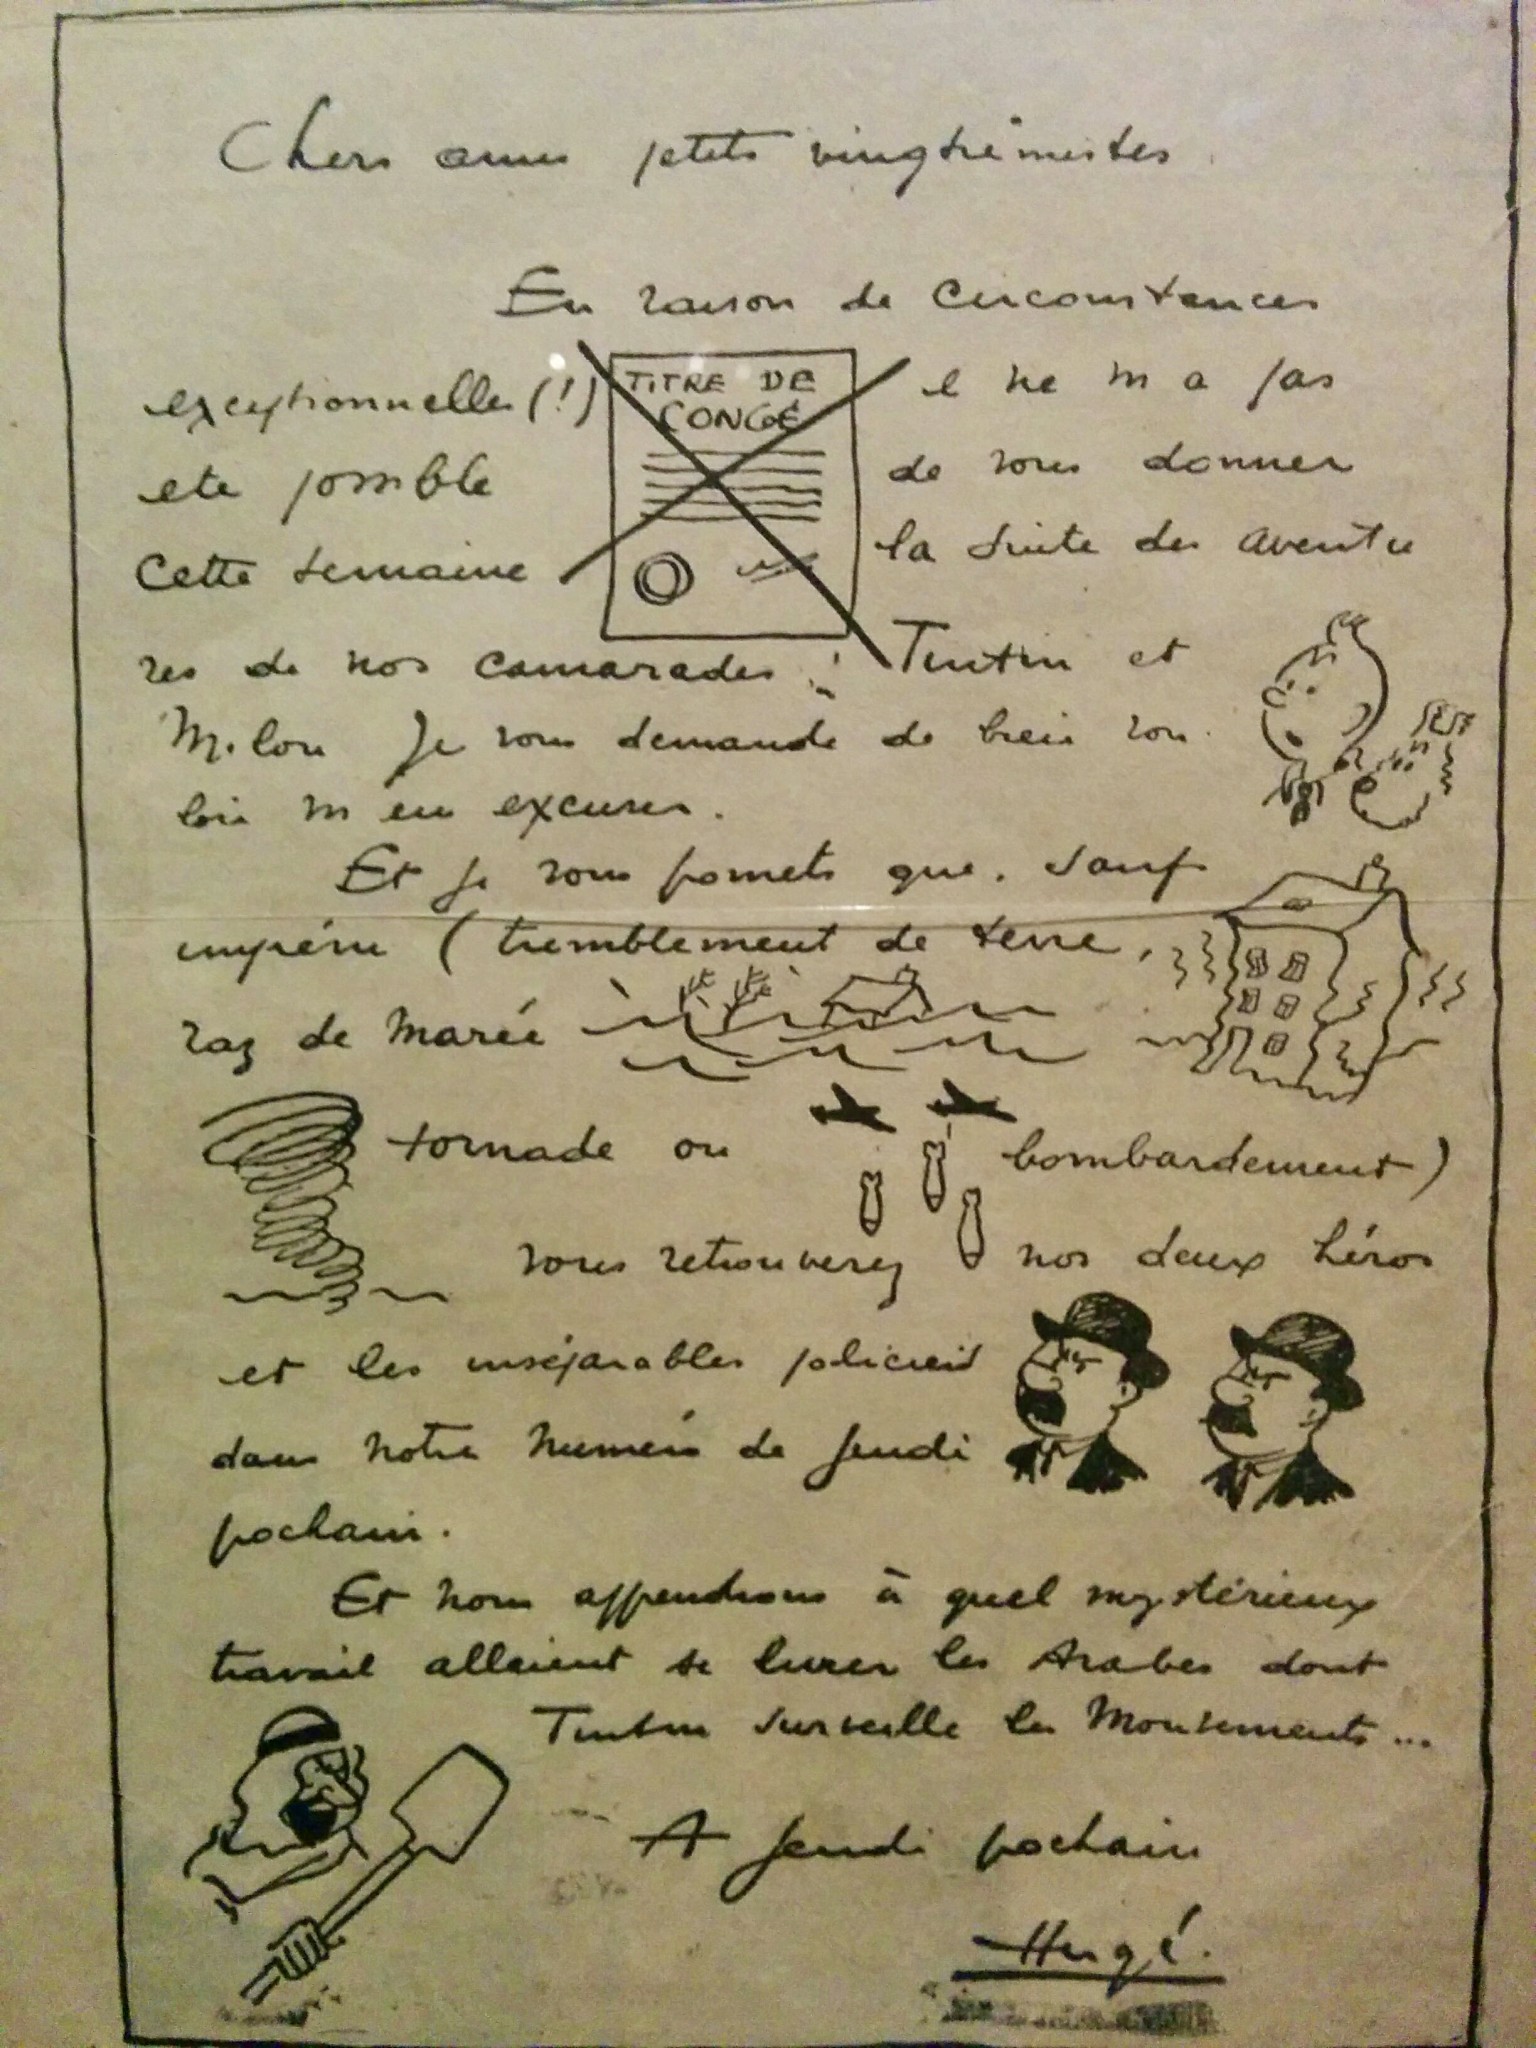 Chers amis petits vingtièmistes
En raison de circonstances
exceptionnelles (!) TITRE DE CONGÉ il ne m a pas
ete possible de vous donner
cette semaine la suite des aventu
res de nos camarades : Tintin et
Milou Je vous demande de bien vou
loir m en excuser.
Et je vous promets que, sauf
imprévu (tremblement de terre,
raz de marée
tornade ou bombardement)
vous retrouverez nos deux héros
et les inséparables policiers
dans notre numéro de jeudi
prochain.
Et nous apprendrons à quel mystérieux
travail allaient se livrer les Arabes dont
Tintin surveille les mouvements ...
A jeudi prochain
Hergé.